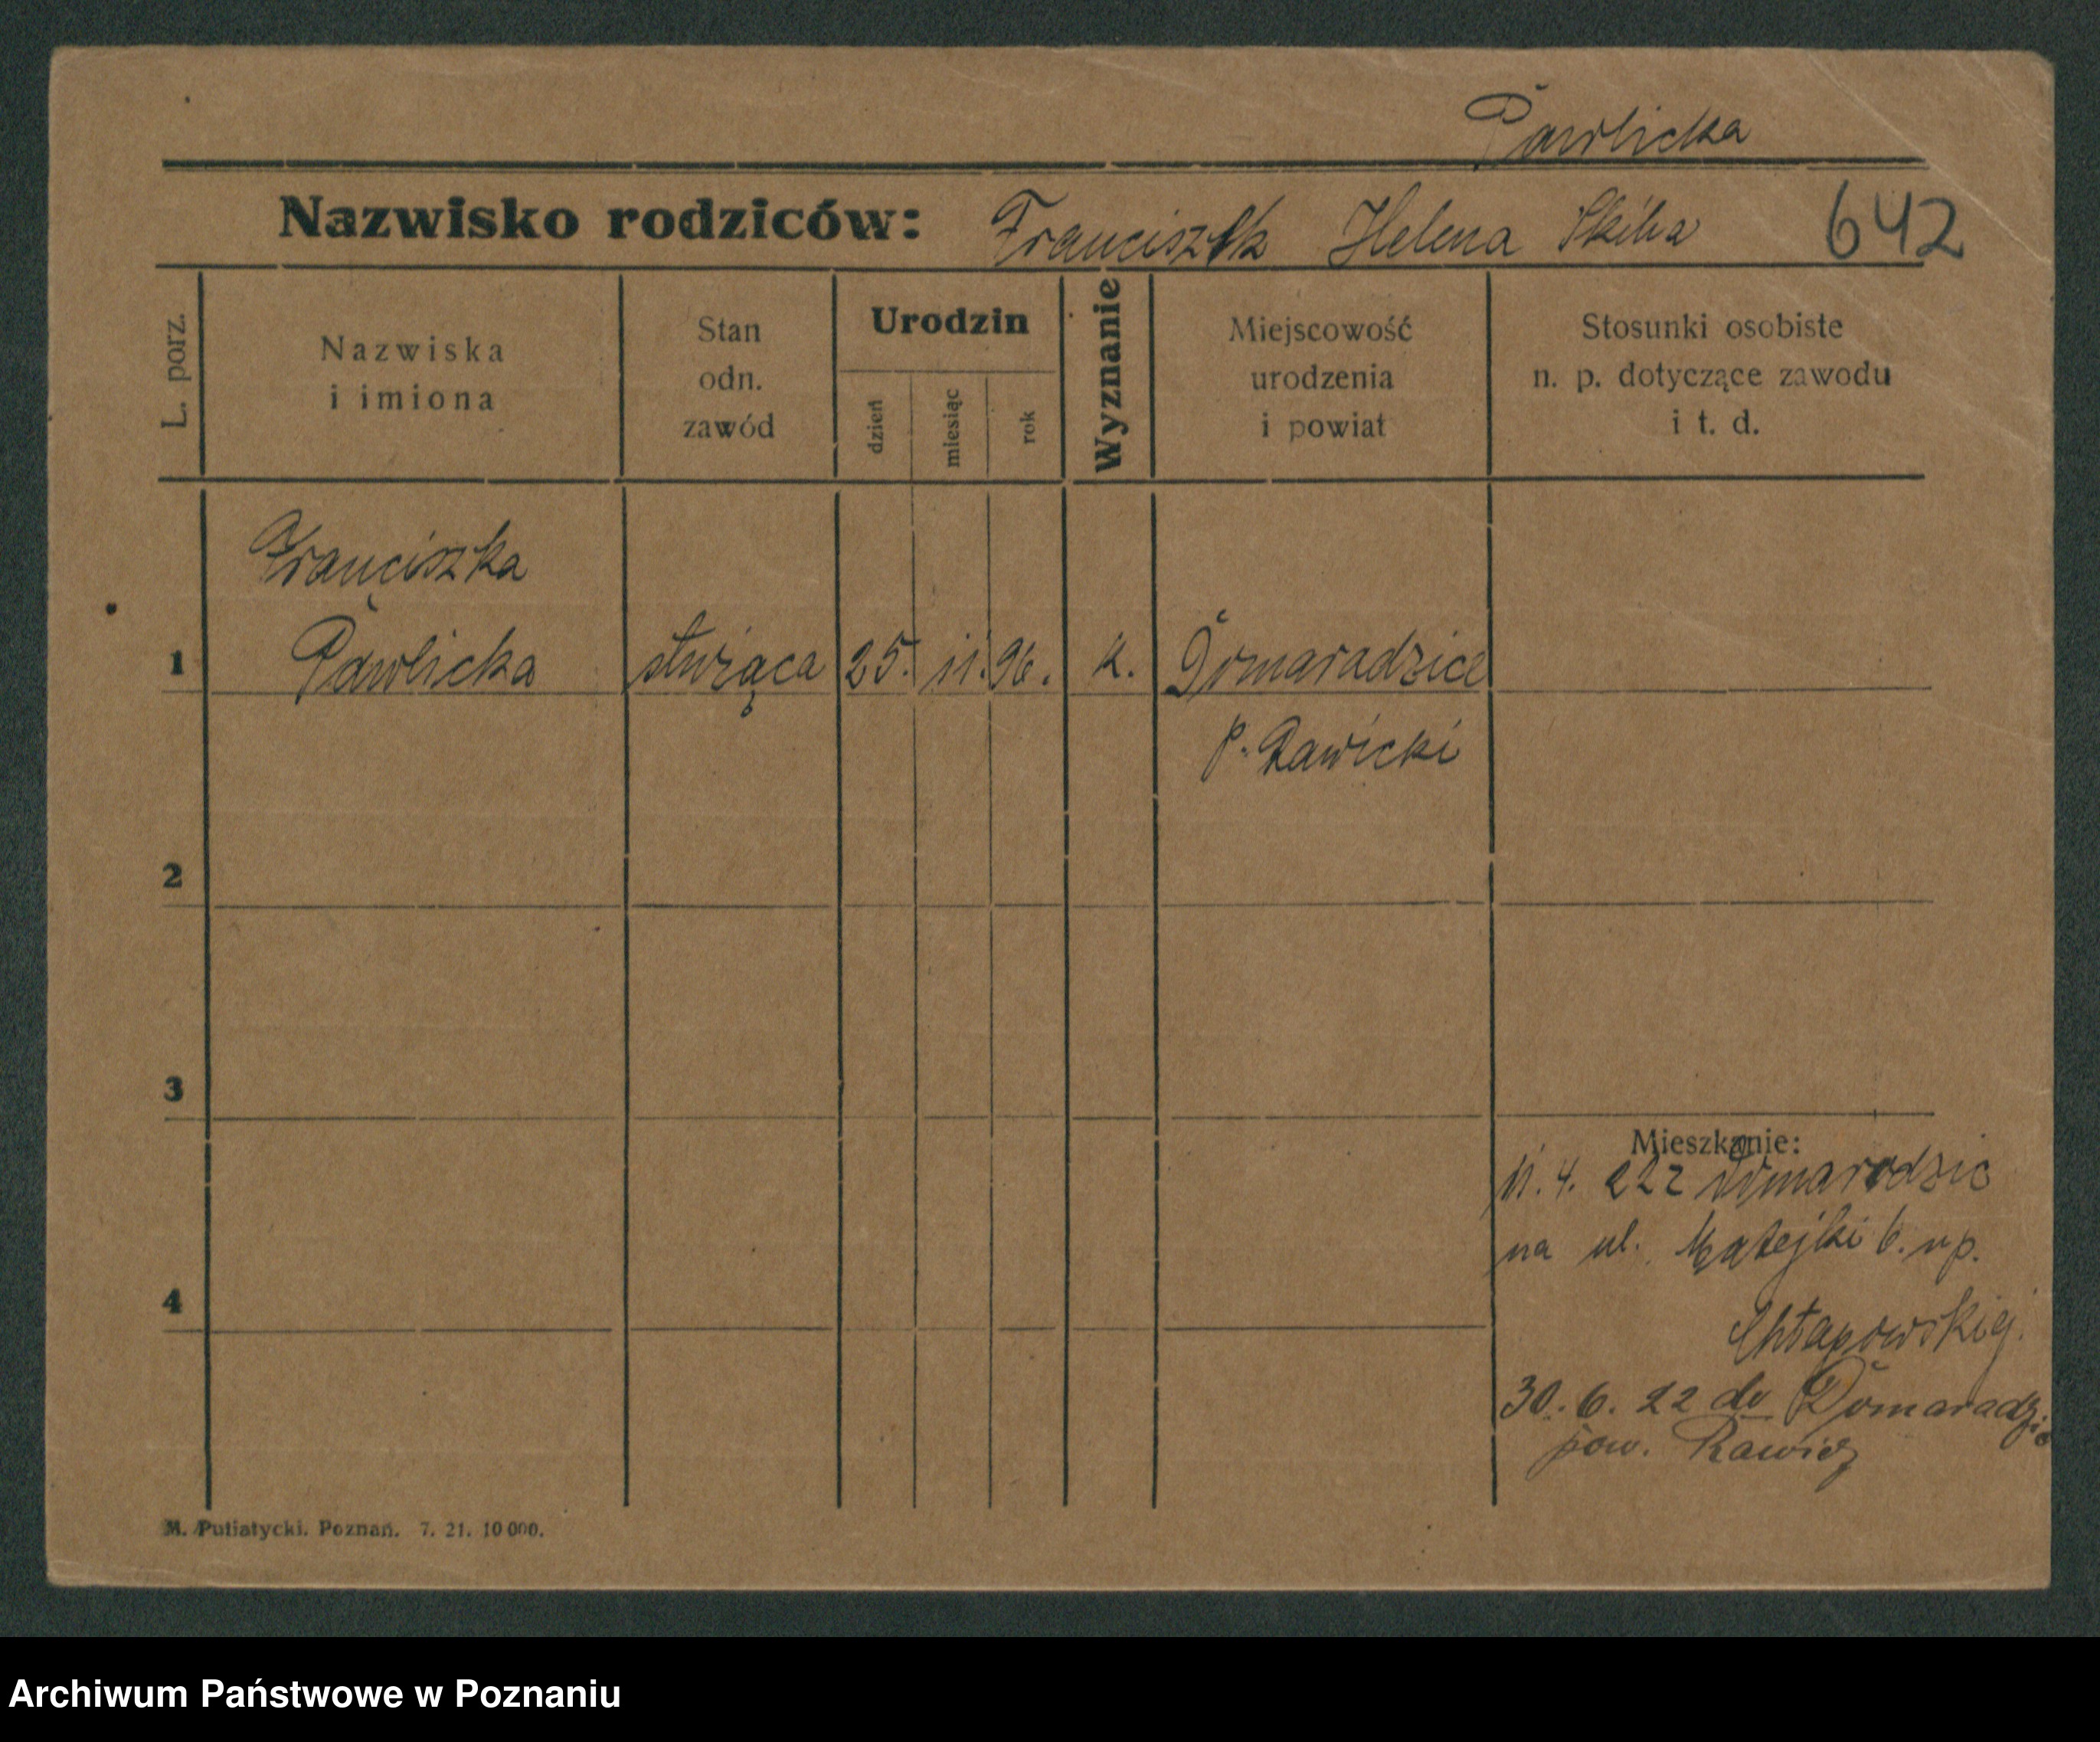 Pawlicka
Nazwisko rodziców: Franciszek Helena Skiba 642
L. porz.
Nazwiska
i imiona
Stan
odn.
zawód
Urodzin
dzień
miesiąc
rok
Wyznanie
Miejscowość
urodzenia
i powiat
Stosunki osobiste
n. p. dotyczące zawodu
i t. d.
Franciszka
1 Pawlicka służąca 25. 11. 96. k. Domaradzice
p. Rawicki
2
3
Mieszkanie:
11. 4. 222 Domaradzic
na ul. Matejki 6. u p.
4
Chłapowskiej.
30. 6. 22 do Domaradzic
pow. Rawicz
M. Putiatycki. Poznań. 7. 21. 10 000.
Archiwum Państwowe w Poznaniu